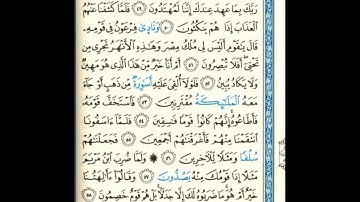 رَبَّكَ بِمَا عَهِدَ عِندَكَ إِنَّنَا لَمُهْتَدُونَ ٤٩ فَلَمَّا كَشَفْنَا عَنْهُمُ
ٱلْعَذَابَ إِذَا هُمْ يَنكُثُونَ ٥٠ وَنَادَىٰ فِرْعَوْنُ فِي قَوْمِهِۦ
قَالَ يَٰقَوْمِ أَلَيْسَ لِي مُلْكُ مِصْرَ وَهَٰذِهِ ٱلْأَنْهَٰرُ تَجْرِي مِن
تَحْتِيٓ أَفَلَا تُبْصِرُونَ ٥١ أَمْ أَنَا۠ خَيْرٌ مِّنْ هَٰذَا ٱلَّذِي هُوَ مَهِينٌ
وَلَا يَكَادُ يُبِينُ ٥٢ فَلَوْلَآ أُلْقِيَ عَلَيْهِ أَسْوِرَةٌ مِّن ذَهَبٍ أَوْ جَآءَ
مَعَهُ ٱلْمَلَٰٓئِكَةُ مُقْتَرِنِينَ ٥٣ فَٱسْتَخَفَّ قَوْمَهُۥ
فَأَطَاعُوهُ إِنَّهُمْ كَانُوا۟ قَوْمًا فَٰسِقِينَ ٥٤ فَلَمَّآ ءَاسَفُونَا
ٱنتَقَمْنَا مِنْهُمْ فَأَغْرَقْنَٰهُمْ أَجْمَعِينَ ٥٥ فَجَعَلْنَٰهُمْ
سَلَفًا وَمَثَلًا لِّلْءَاخِرِينَ ٥٦ ۞ وَلَمَّا ضُرِبَ ٱبْنُ مَرْيَمَ
مَثَلًا إِذَا قَوْمُكَ مِنْهُ يَصِدُّونَ ٥٧ وَقَالُوٓا۟ ءَأَٰلِهَتُنَا
خَيْرٌ أَمْ هُوَ مَا ضَرَبُوهُ لَكَ إِلَّا جَدَلًۢا بَلْ هُمْ قَوْمٌ خَصِمُونَ ٥٨